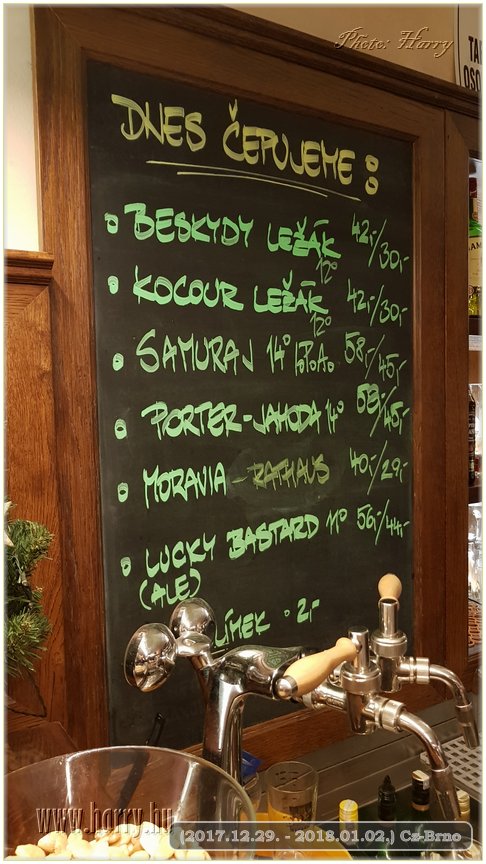 Photo: Harry
DNES ČEPUJEME :
BESKYDY LEŽÁK 12° 42,-/30,-
KOCOUR LEŽÁK 12° 42,-/30,-
SAMURAJ 14° I.P.A. 58,-/45,-
PORTER-JAHODA 14° 58,-/45,-
MORAVIA-RATHAUS 40,-/29,-
LUCKY BASTARD 11° 56,-/44,-
(ALE)
2,-
www.horry.hu
(2017.12.29. - 2018.01.02.) Cz-Brno